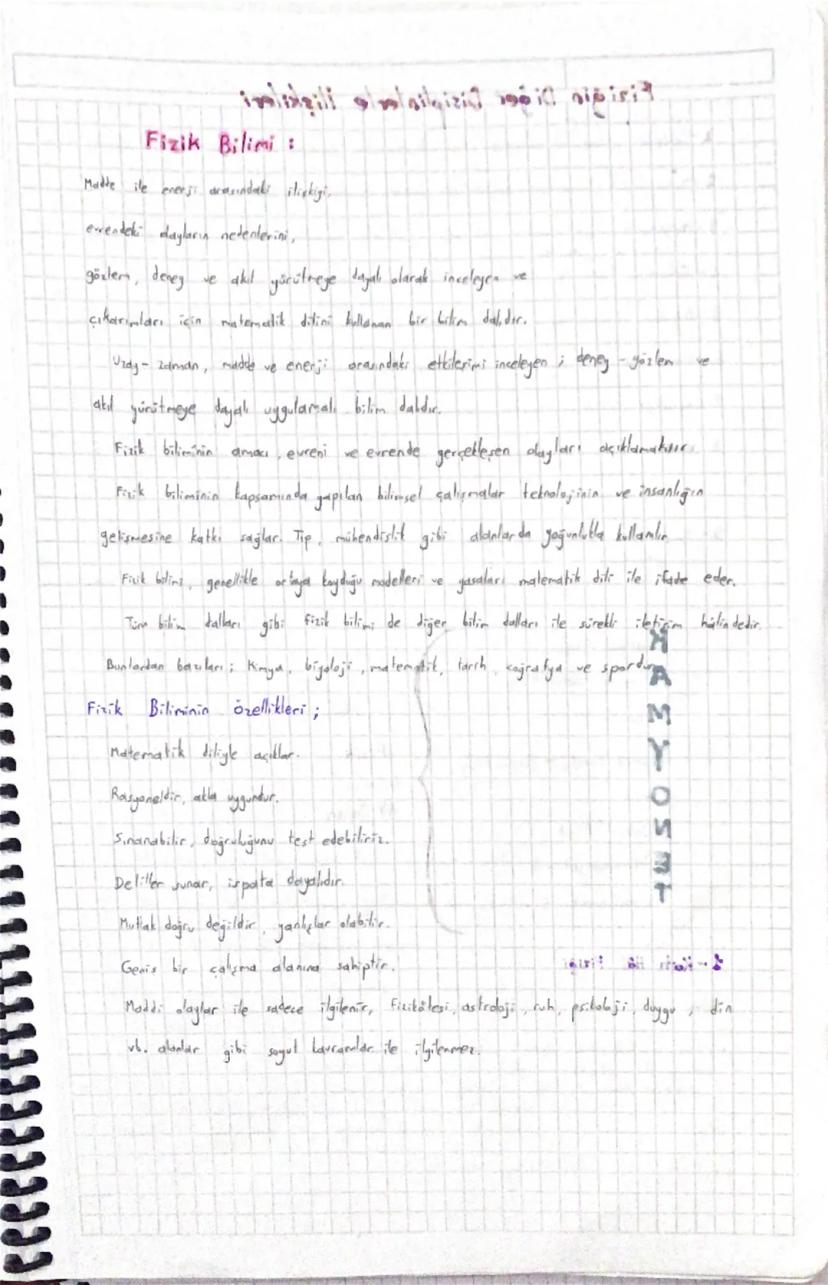 Fiziğin Diğer Disiplinlerle İlişkileri
Fizik Bilimi :
Madde ile enerji arasındaki ilişkiyi,
evrendeki olayların nedenlerini,
gözlem, deney ve akıl yürütmeye dayalı olarak inceleyen ve
çıkarımları için matematik dilini kullanan bir bilim dalıdır.
Uzay-zaman, madde ve enerji arasındaki etkileşimi inceleyen ; deney-gözlem ve
akıl yürütmeye dayalı uygulamalı bilim dalıdır.
Fizik biliminin amacı, evreni ve evrende gerçekleşen olayları açıklamaktır.
Fizik biliminin kapsamında yapılan bilimsel çalışmalar teknolojinin ve insanlığın
gelişmesine katkı sağlar. Tıp, mühendislik gibi alanlarda yoğunlukla kullanılır.
Fizik bilimi, genellikle ortaya koyduğu modelleri ve yasaları matematik dili ile ifade eder.
Tüm bilim dalları gibi fizik bilimi de diğer bilim dalları ile sürekli iletişim hâlindedir.
Bunlardan bazıları ; Kimya, biyoloji, matematik, tarih, coğrafya ve spordur.
KAMYONET
Fizik Biliminin özellikleri ;
Matematik diliyle açıklar.
Rasyoneldir, akla uygundur.
Sınanabilir, doğruluğunu test edebiliriz.
Deliller sunar, ispata dayalıdır.
Mutlak doğru değildir, yanlışlar olabilir.
Geniş bir çalışma alanına sahiptir.
Fiziği
Maddi olaylar ile sadece ilgilenir, Fizikötesi, astroloji, ruh, psikoloji, duygu, din
vb. alanlar gibi soyut kavramlar ile ilgilenmez.